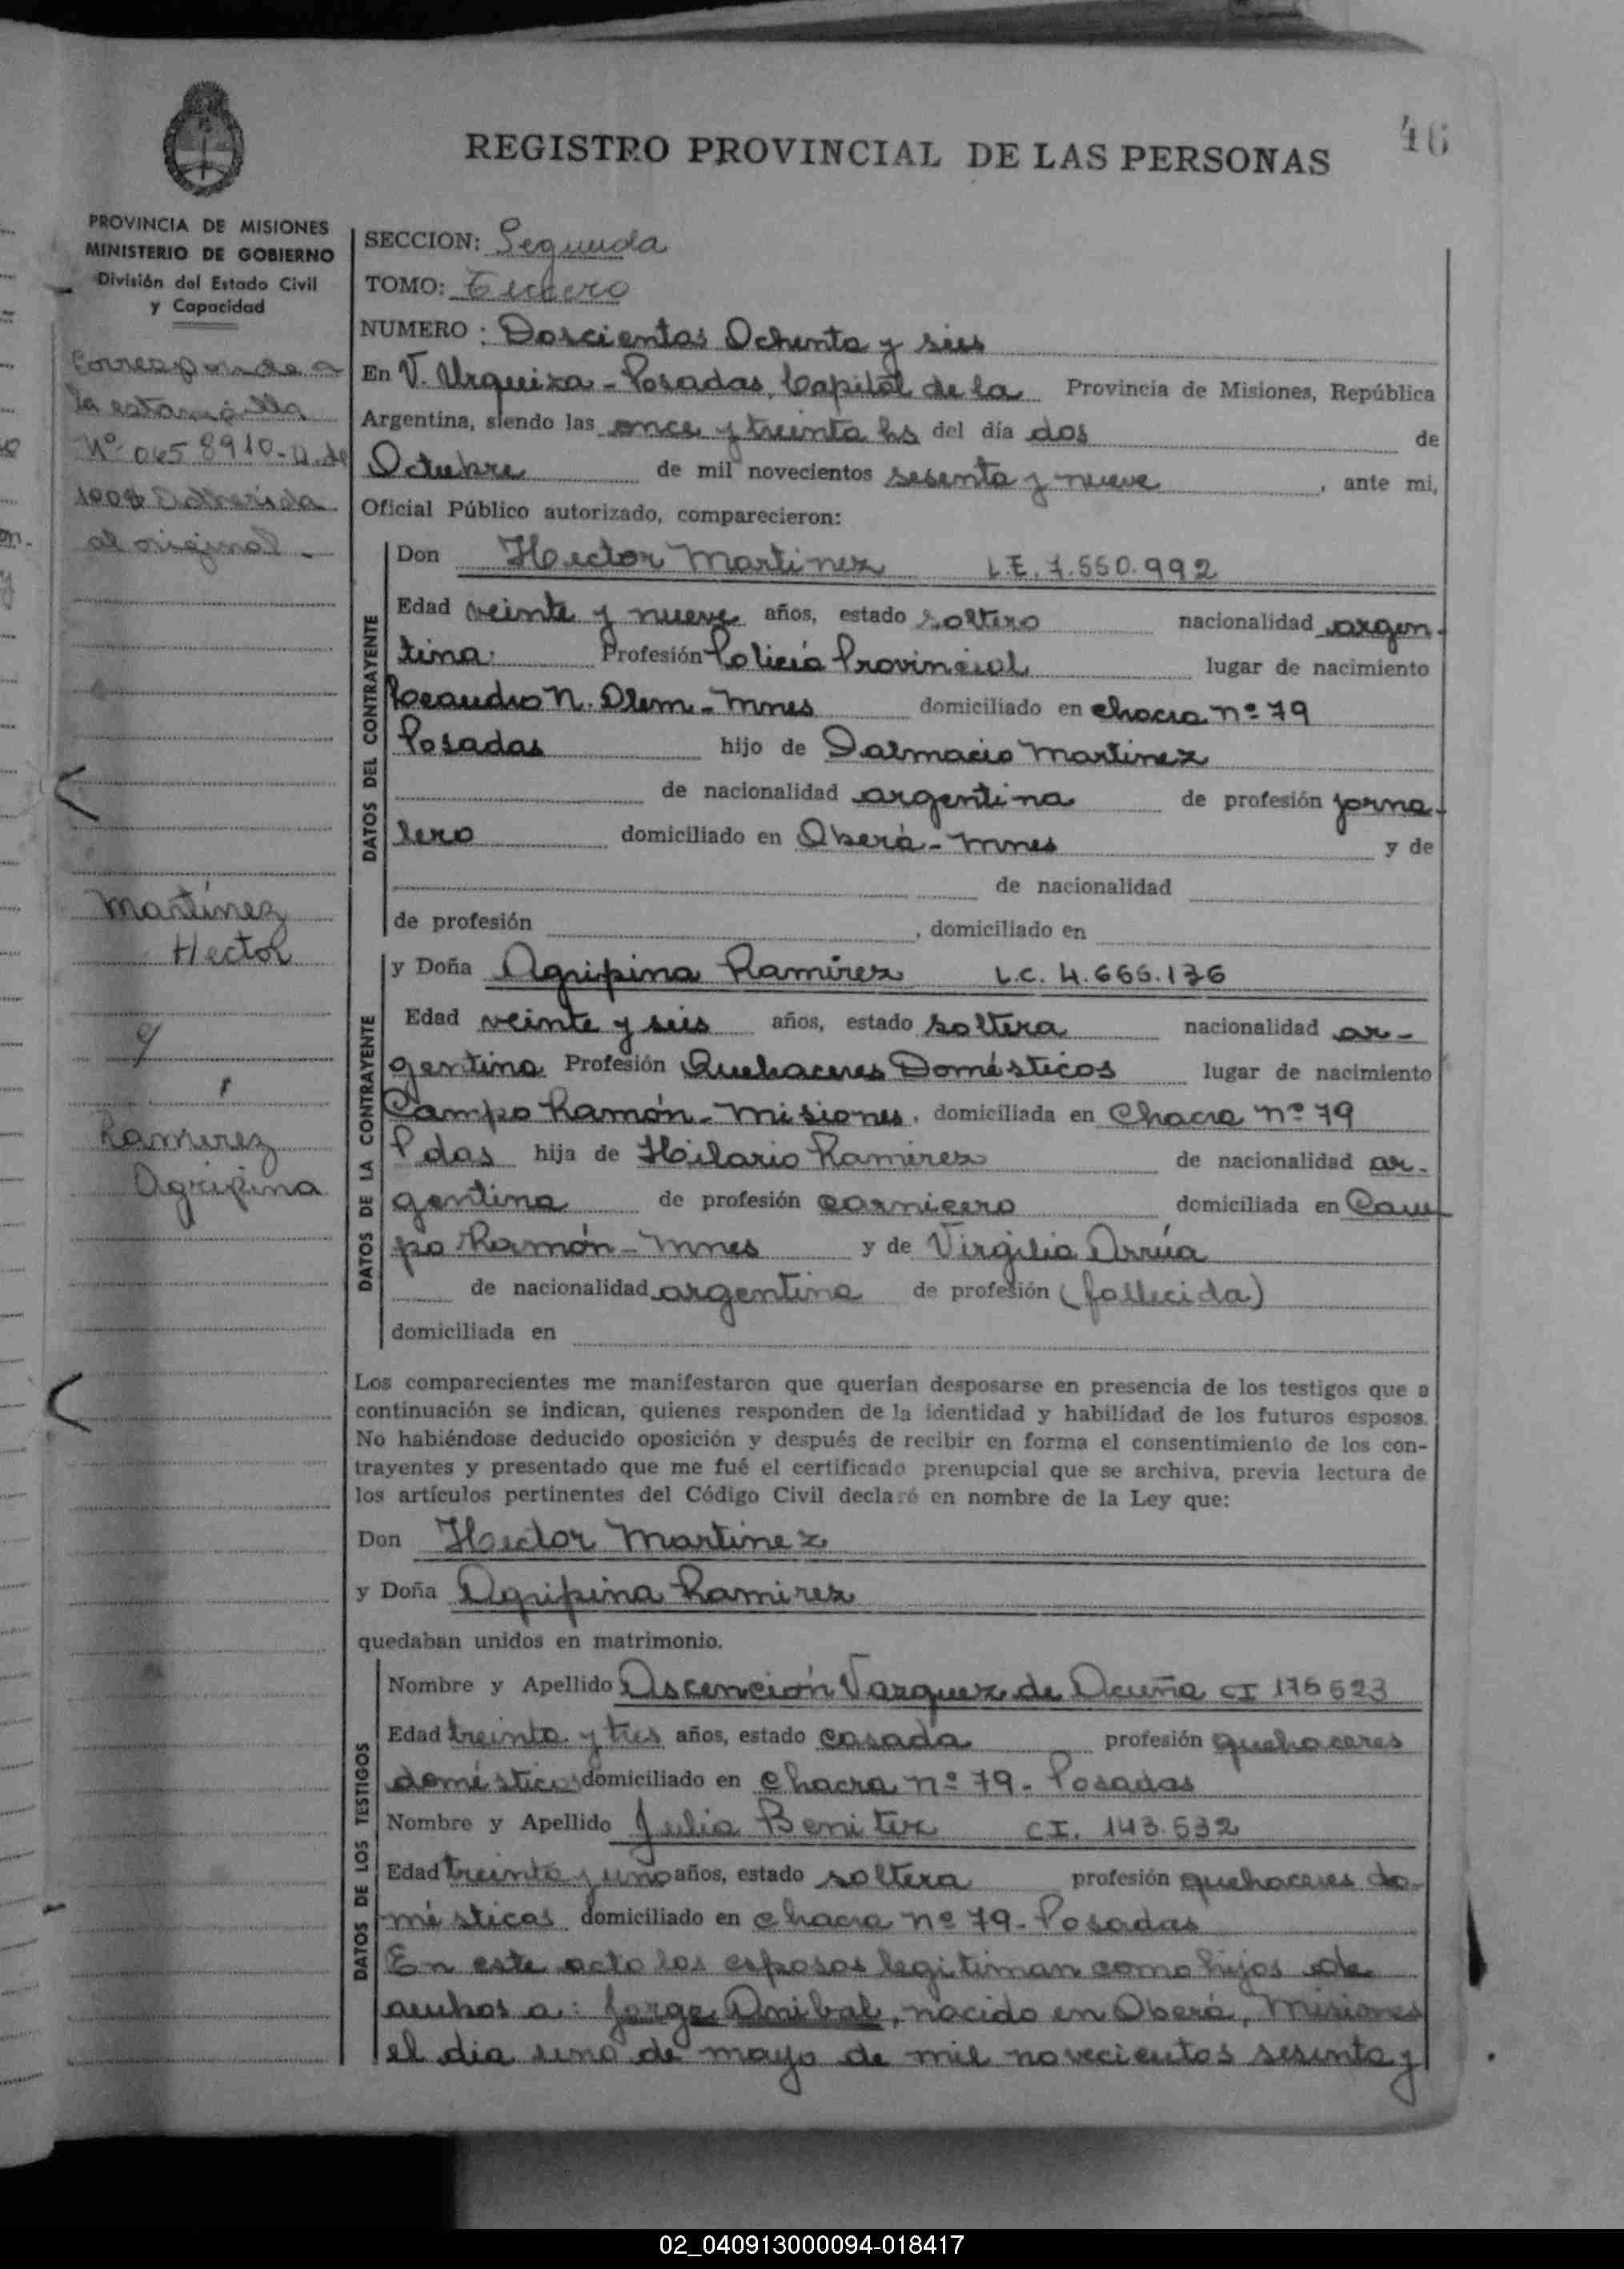 46
REGISTRO PROVINCIAL DE LAS PERSONAS
PROVINCIA DE MISIONES
MINISTERIO DE GOBIERNO
División del Estado Civil
y Capacidad
Corresponde a
la estampilla
Nº 0458910-D. de
100$ Adherida
al original -
Martínez
Hector
y
Ramirez
Agripina
SECCION: Segunda
TOMO: Tercero
NUMERO: Doscientos Ochenta y seis
En V. Urquiza - Posadas, Capital de la Provincia de Misiones, República
Argentina, siendo las once y treinta hs del día dos de
Octubre de mil novecientos sesenta y nueve, ante mi,
Oficial Público autorizado, comparecieron:
DATOS DEL CONTRAYENTE
Don Hector Martinez L.E. 7.550.992
Edad veinte y nueve años, estado soltero nacionalidad argen-
tina. Profesión Policía Provincial lugar de nacimiento
Leandro N. Alem - Mnes domiciliado en chacra nº 79
Posadas hijo de Dalmacio Martinez
de nacionalidad argentina de profesión jorna-
lero domiciliado en Oberá - Mnes y de
de nacionalidad
de profesión , domiciliado en
DATOS DE LA CONTRAYENTE
y Doña Agripina Ramírez L.C. 4.666.136
Edad veinte y seis años, estado soltera nacionalidad ar-
gentina Profesión Quehaceres Domésticos lugar de nacimiento
Campo Ramón - Misiones, domiciliada en Chacra nº 79
Pdas hija de Hilario Ramirez de nacionalidad ar-
gentina de profesión carnicero domiciliada en Cam
po Ramón - Mnes y de Virgilia Arrúa
de nacionalidad argentina de profesión (fallecida)
domiciliada en
Los comparecientes me manifestaron que querían desposarse en presencia de los testigos que a
continuación se indican, quienes responden de la identidad y habilidad de los futuros esposos.
No habiéndose deducido oposición y después de recibir en forma el consentimiento de los con-
trayentes y presentado que me fué el certificado prenupcial que se archiva, previa lectura de
los artículos pertinentes del Código Civil declaré en nombre de la Ley que:
Don Hector Martinez
y Doña Agripina Ramirez
quedaban unidos en matrimonio.
DATOS DE LOS TESTIGOS
Nombre y Apellido Ascención Vazquez de Acuña CI 176623
Edad treinta y tres años, estado casada profesión quehaceres
domésticos domiciliado en chacra nº 79. Posadas
Nombre y Apellido Julia Benitez CI. 143.632
Edad treinta y uno años, estado soltera profesión quehaceres do-
mésticos domiciliado en chacra nº 79 - Posadas
En este acto los esposos legitiman como hijos de
ambos a: Jorge Anibal, nacido en Oberá, Misiones
el día uno de mayo de mil novecientos sesenta y
02_040913000094-018417